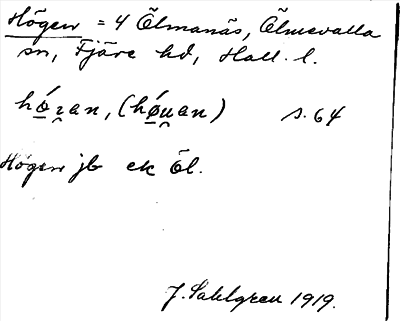 Högen = 4 Ölmanäs, Ölmevalla
sn, Fjäre hd, Hall. l.
hó̲ʒan, (hó̲u̯an) s. 64
Högen jb ek Öl.
J. Sahlgren 1919.